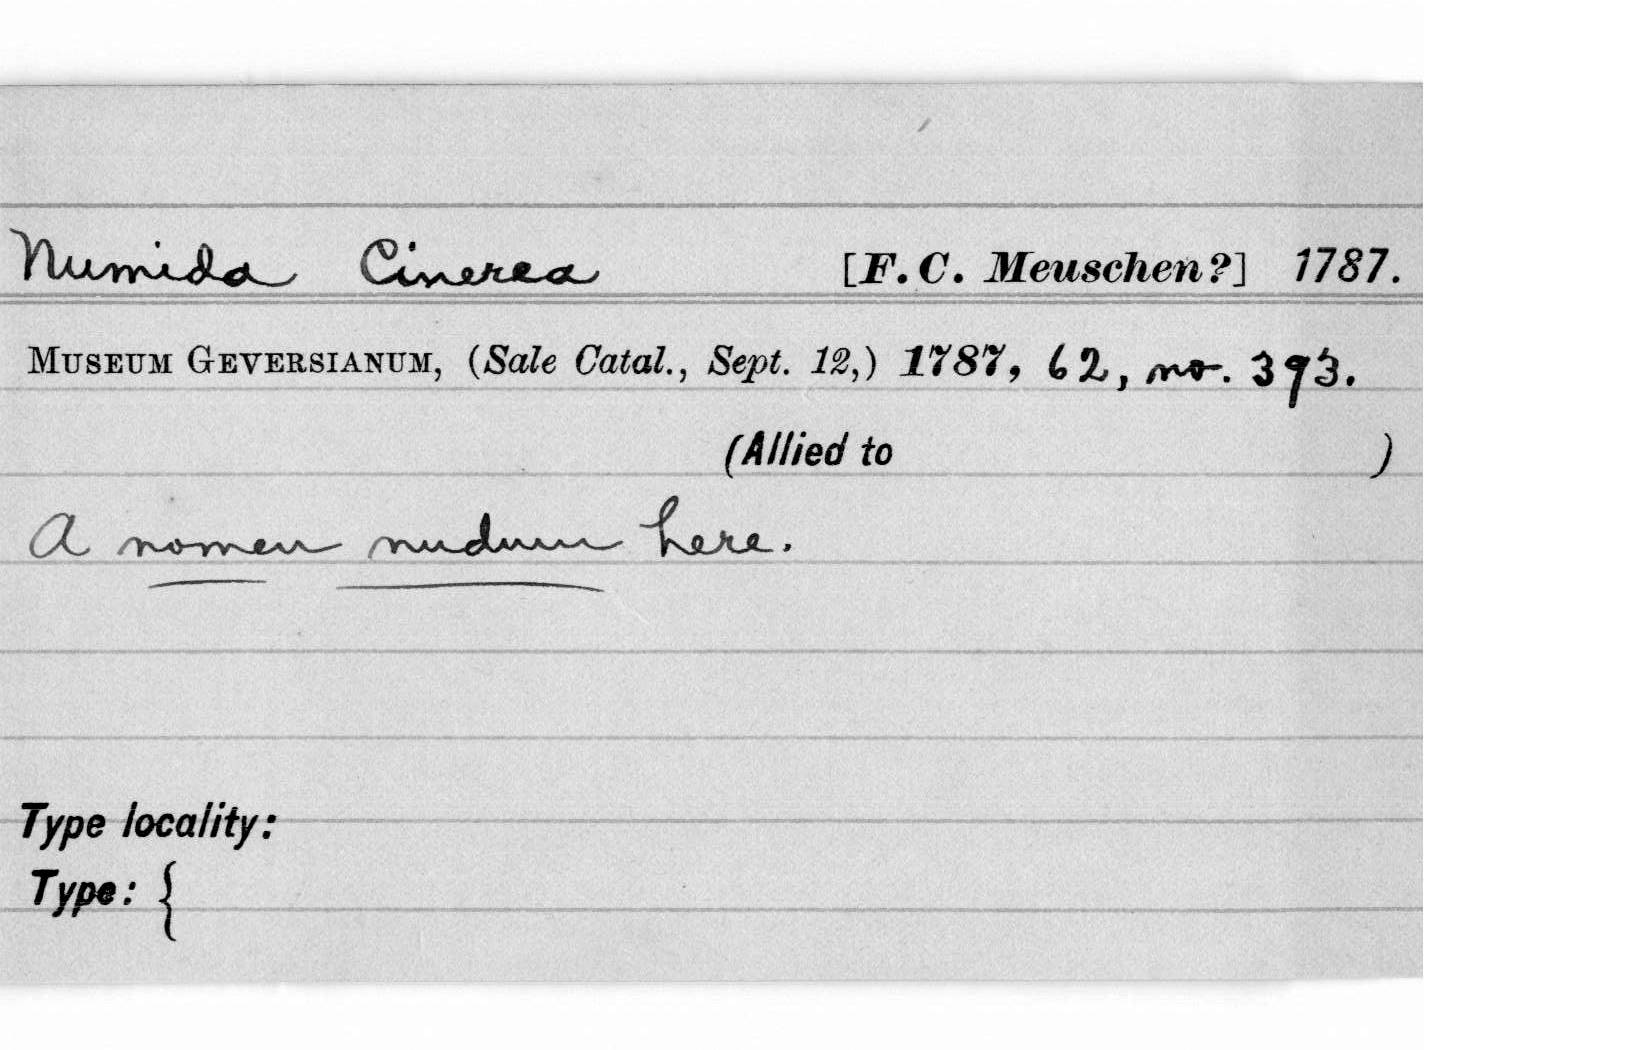 Numida Cinerea [F. C. Meuschen?] 1787.
MUSEUM GEVERSIANUM, (Sale Catal., Sept. 12,) 1787, 62, no. 393.
(Allied to )
A nomen nudum here.
Type locality:
Type: {